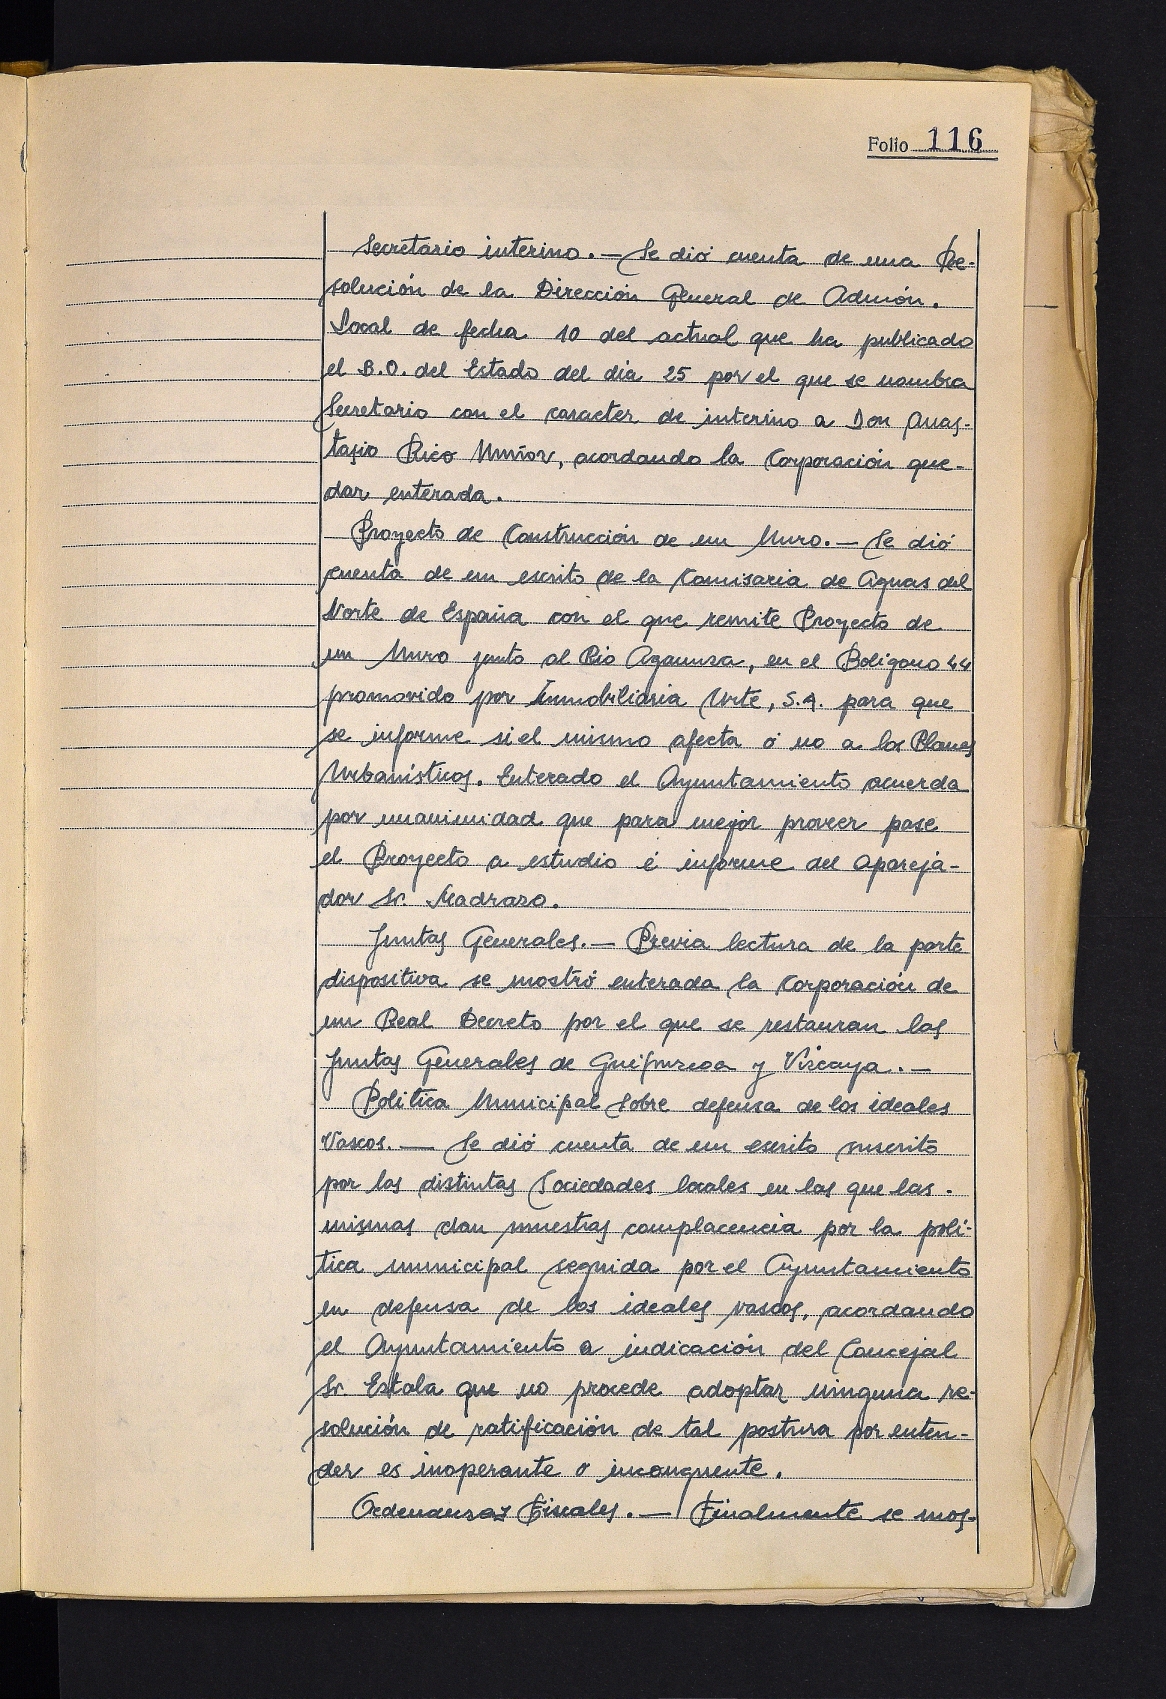 Folio 116
Secretario interino. — Se dió cuenta de una Re-
solución de la Dirección General de Admón.
Local de fecha 10 del actual que ha publicado
el B.O. del Estado del día 25 por el que se nombra
Secretario con el caracter de interino a Don Anas-
tasio Rico Muñoz, acordando la Corporación que-
dar enterada.
Proyecto de Construcción de un Muro. — Se dió
cuenta de un escrito de la Comisaria de Aguas del
Norte de España con el que remite Proyecto de
un Muro junto al Rio Agaunza, en el Poligono 44
promovido por Inmobiliaria Urte, S.A. para que
se informe si el mismo afecta ó no a los Planes
Urbanísticos. Enterado el Ayuntamiento acuerda
por unanimidad que para mejor proveer pase
el Proyecto a estudio é informe del Apareja-
dor Sr. Madrazo.
Juntas Generales. — Previa lectura de la parte
dispositiva se mostró enterada la Corporación de
un Real Decreto por el que se restauran las
Juntas Generales de Guipuzcoa y Vizcaya. —
Politica Municipal sobre defensa de los ideales
Vascos. — Se dió cuenta de un escrito suscrito
por las distintas Sociedades locales en las que las.
mismas dan muestras complacencia por la polí-
tica municipal seguida por el Ayuntamiento
en defensa de los ideales vascos, acordando
el Ayuntamiento a indicación del Concejal
Sr. Estala que no procede adoptar ninguna re-
solución de ratificación de tal postura por enten-
der es inoperante o incongruente.
Ordenanzas Fiscales. — Finalmente se mos-